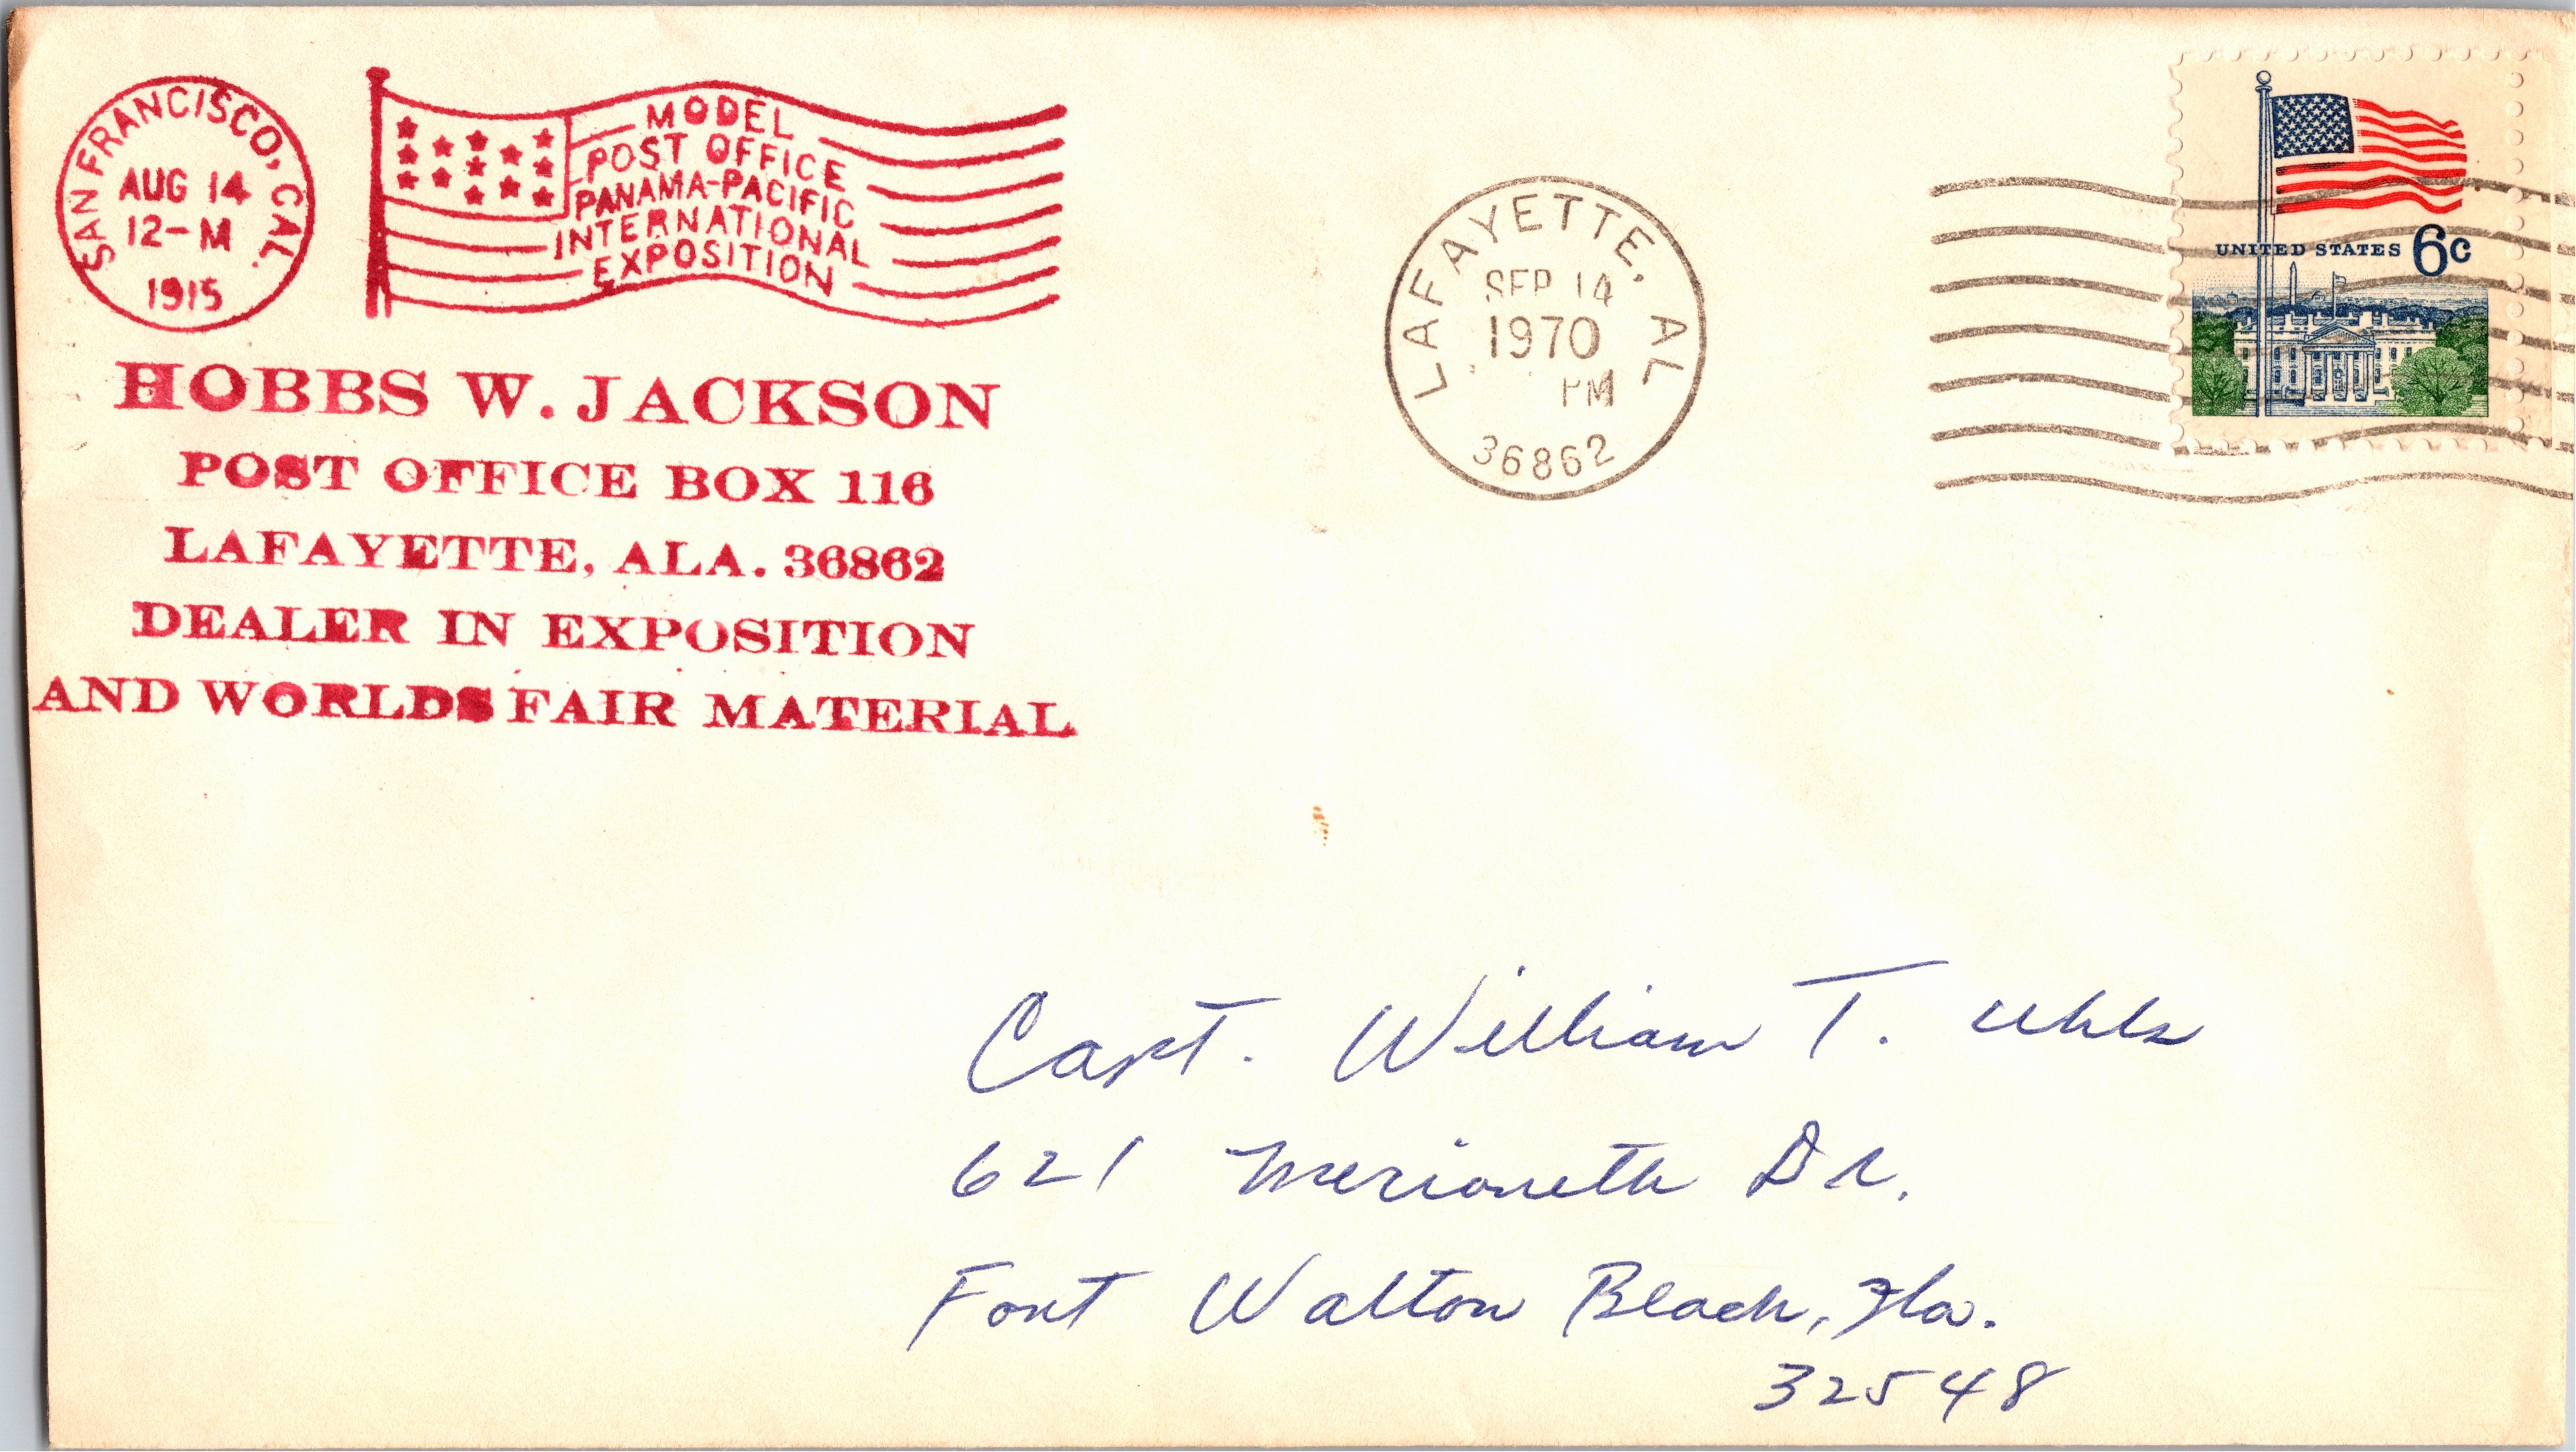 SAN FRANCISCO, CAL.
AUG 14
12-M
1915
MODEL
POST OFFICE
PANAMA-PACIFIC
INTERNATIONAL
EXPOSITION
HOBBS W. JACKSON
POST OFFICE BOX 116
LAFAYETTE, ALA. 36862
DEALER IN EXPOSITION
AND WORLDS FAIR MATERIAL
LAFAYETTE, AL
SEP 14
1970
PM
36862
UNITED STATES 6c
Capt. William T. Uhls
621 Merioneth Dr.
Fort Walton Beach, Fla.
32548